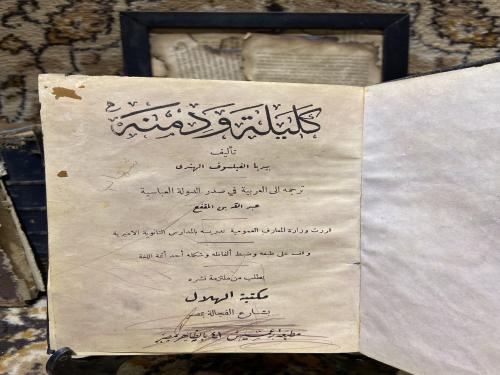 كليلة ودمنة
تأليف
بيدبا الفيلسوف الهندى
ترجمه الى العربية في صدر الدولة العباسية
عبد الله بن المقفع
قررت وزارة المعارف العمومية تدريسه بالمدارس الثانوية الاميرية
وقف على طبعه وضبط ألفاظه وشكله أحد أئمة اللغة
يطلب من ملتزمة نشره
مكتبة الهلال
بشارع الفجالة بمصر